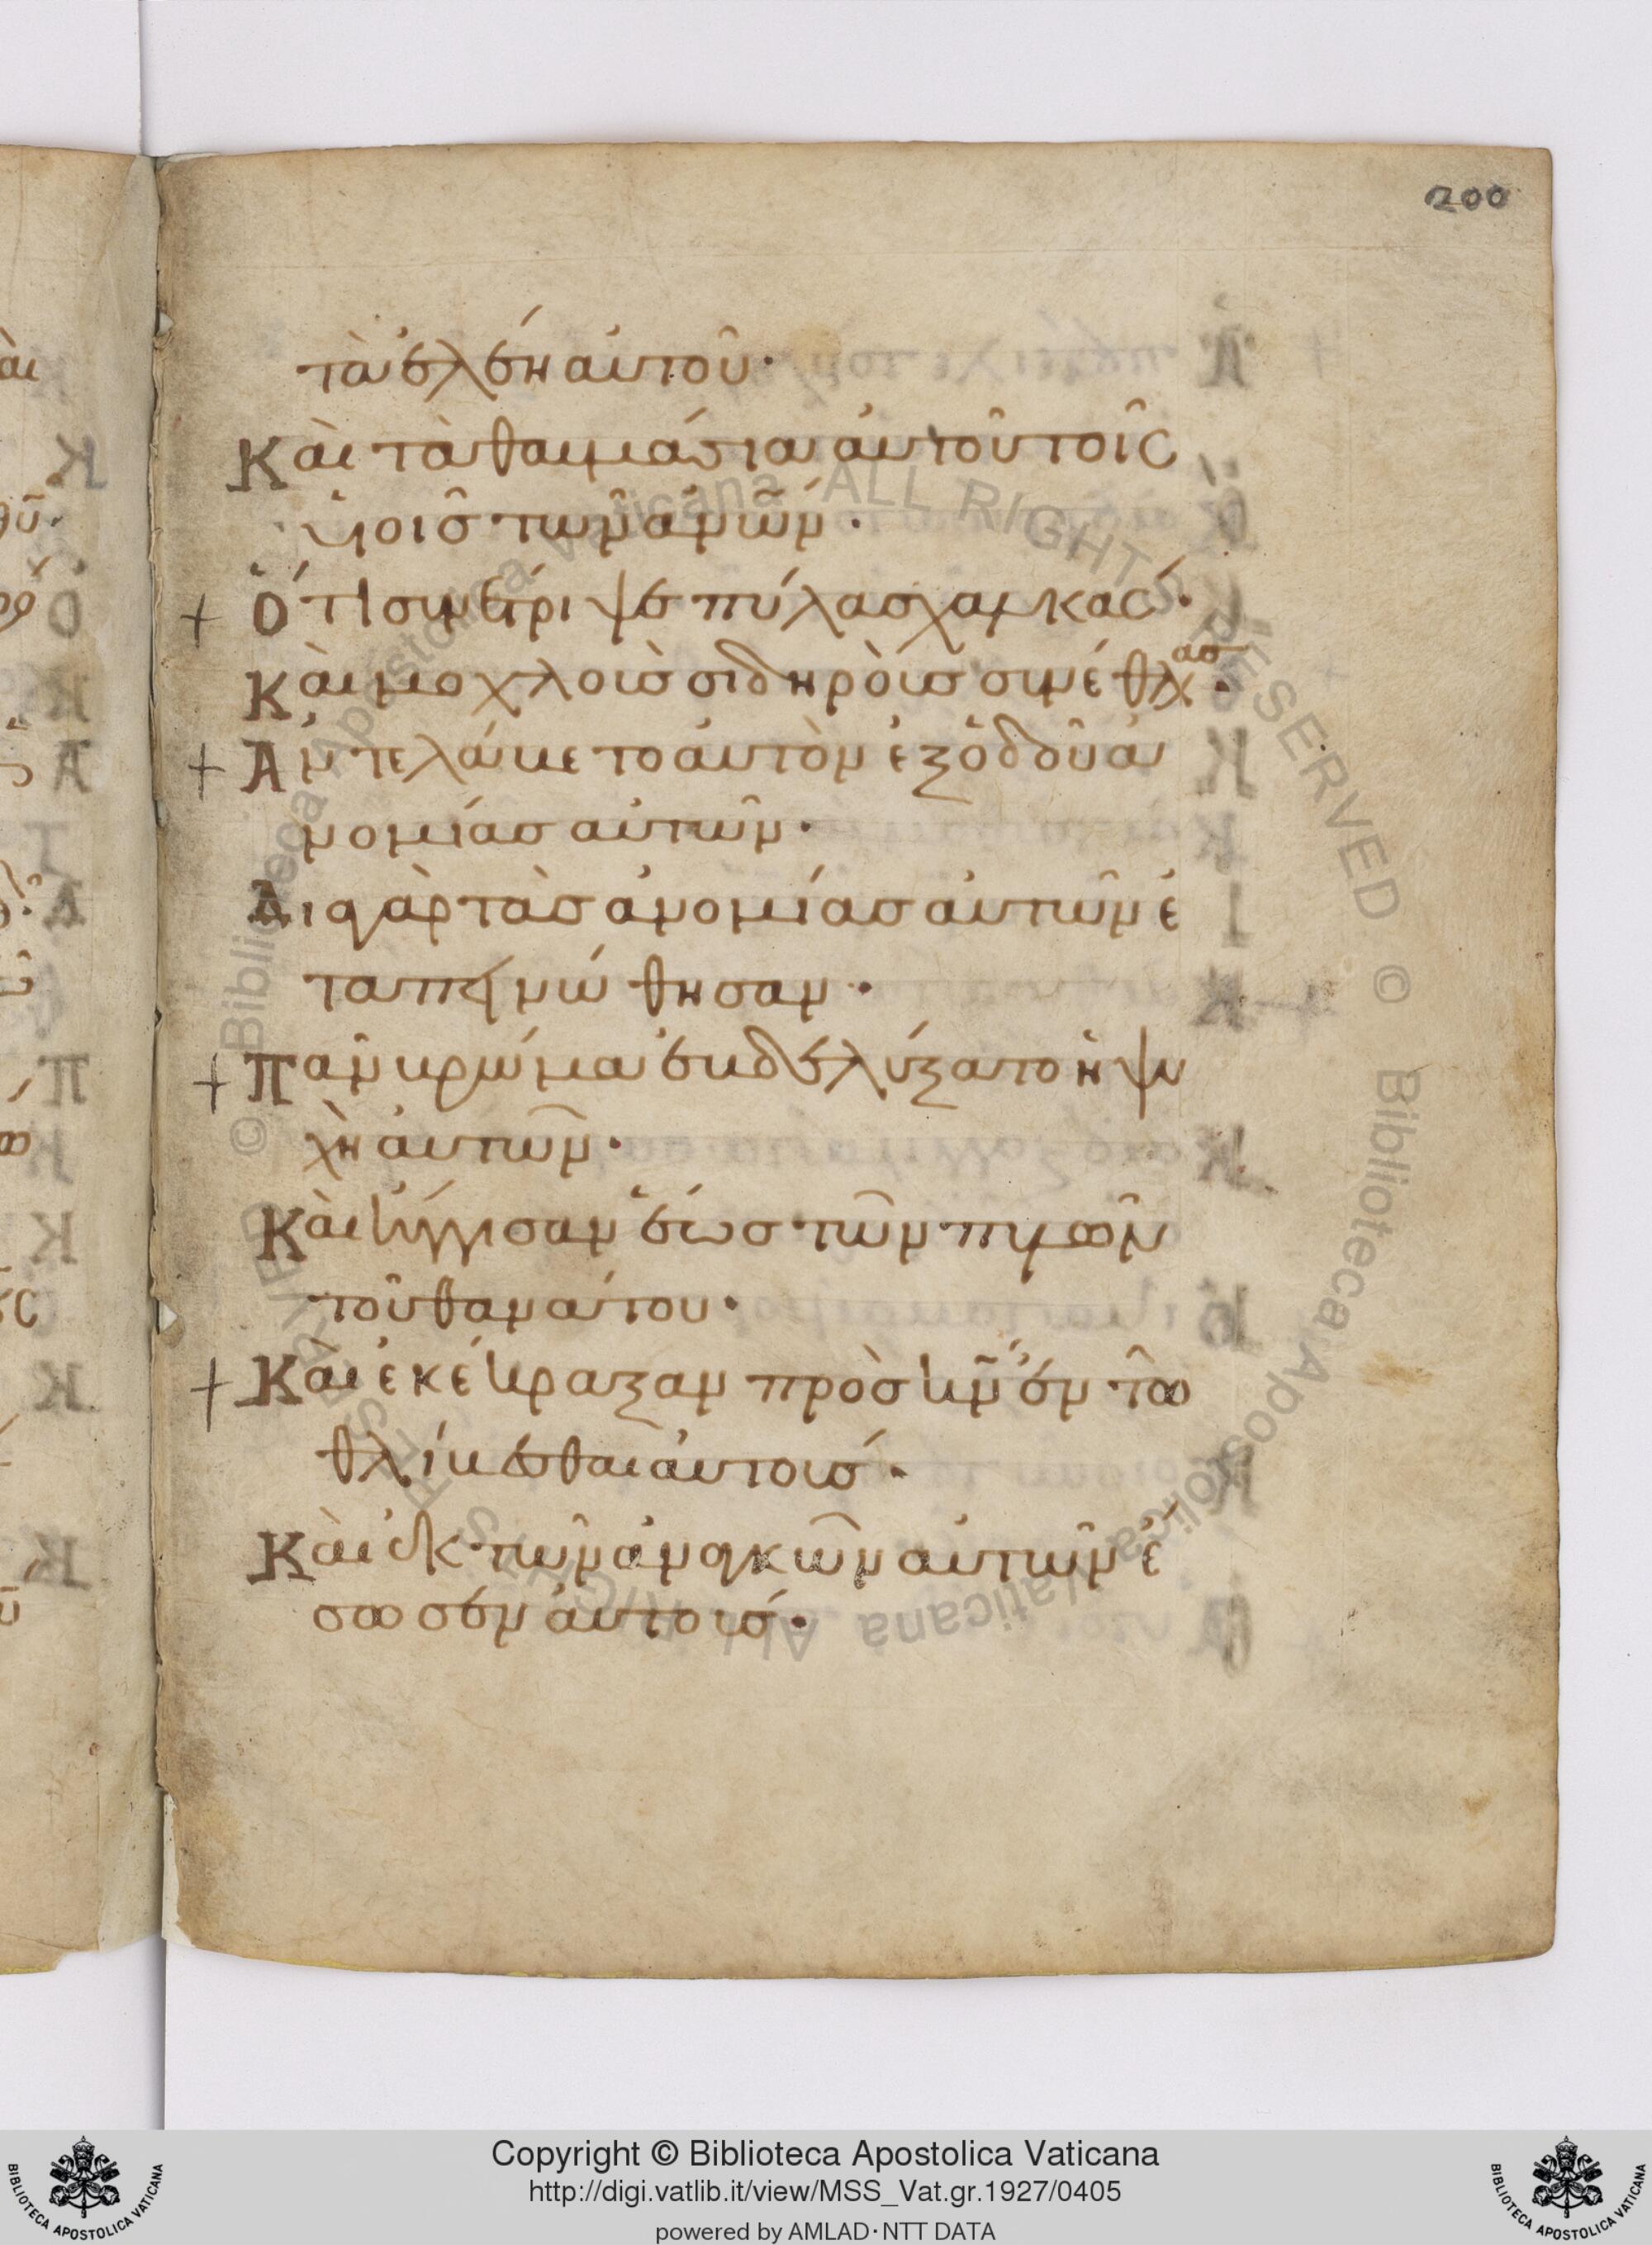 200
τὰ ἐλέη αὐτοῦ·
Καὶ τὰ θαυμάσια αὐτοῦ τοῖς
υἱοῖς τῶν ἀνῶν·
+ Ὅτι συνέτριψε πύλας χαλκάς·
Καὶ μοχλοὺς σιδηροὺς συνέθλας·
+ Ἀντελάβετο αὐτὸν ἐξ ὁδοῦ ἀ
νομίας αὐτῶν·
Διὰ γὰρ τὰς ἀνομίας αὐτῶν ἐ
ταπεινώθησαν·
+ Πᾶν βρῶμα ἐβδελύξατο ἡ ψυ
χὴ αὐτῶν·
Καὶ ἤγγισαν ἕως τῶν πυλῶν
τοῦ θανάτου·
+ Καὶ ἐκέκραξαν πρὸς κν ἐν τῶ
θλίβεσθαι αὐτούς·
Καὶ ἐκ τῶν ἀναγκῶν αὐτῶν ἔ
σωσεν αὐτούς·
© Biblioteca Apostolica Vaticana ALL RIGHTS RESERVED © Biblioteca Apostolica Vaticana ALL RIGHTS RESERVED
Copyright © Biblioteca Apostolica Vaticana
http://digi.vatlib.it/view/MSS_Vat.gr.1927/0405
powered by AMLAD·NTT DATA
BIBLIOTECA APOSTOLICA VATICANA
BIBLIOTECA APOSTOLICA VATICANA